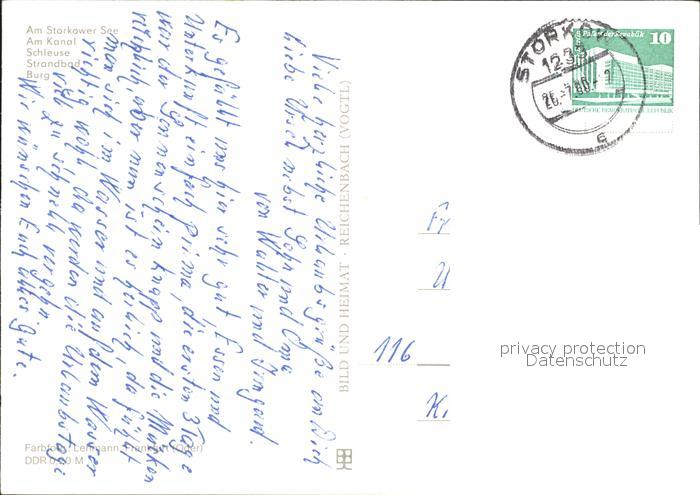 Am Storkower See
Am Kanal
Schleuse
Strandbad
Burg
Viele herzliche Urlaubsgrüße an Dich
liebe nebst Sohn und Oma
von Walter und Irmgard.
Es gefällt uns hier sehr gut, Essen und
Unterkunft einfach prima, die ersten 3 Tage
war der Sonnenschein knapp und die Mücken
aber nun ist es herrlich, da fühlt
man sich im Wasser und auf dem Wasser
richtig wohl, da werden die Urlaubstage
viel zu schnell vergehn.
Wir wünschen Euch alles Gute.
BILD UND HEIMAT · REICHENBACH (VOGTL)
Farbfoto: Lehmann, Frankfurt (Oder)
DDR 0,20 M
STORKOW
123
26.-7.80
e
Palast der Republik 10
DEUTSCHE DEMOKRATISCHE REPUBLIK
Fr
U
116
K
privacy protection
Datenschutz